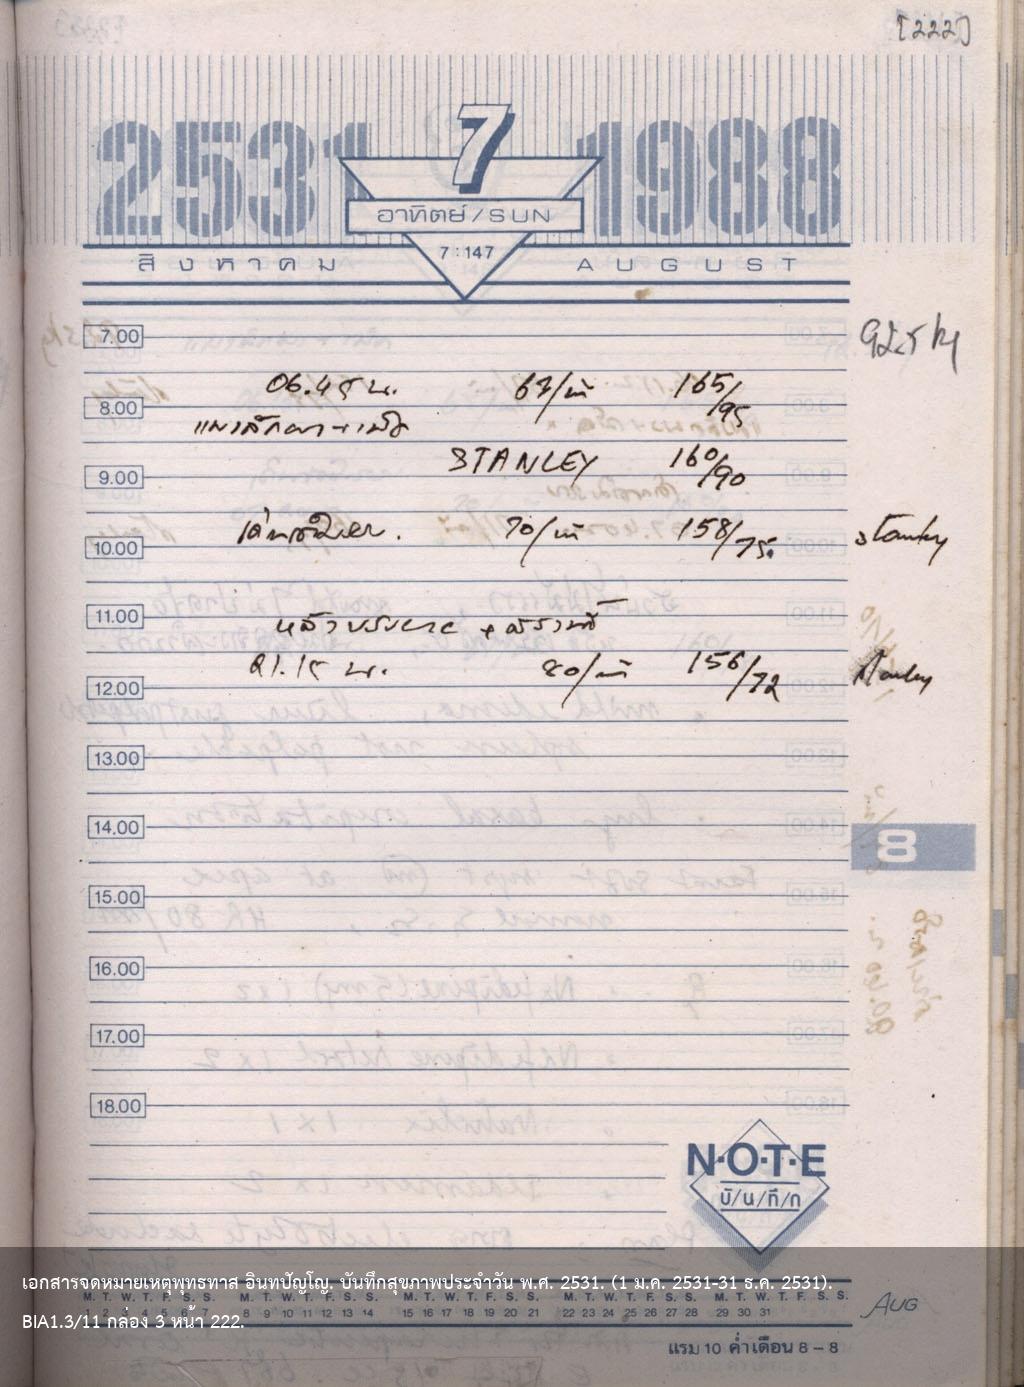 [222]
2531 7 1988
อาทิตย์/SUN
7:147
สิงหาคม AUGUST
7.00
92.5 kg
06.45 น. 165/95
8.00
STANLEY 160/90
9.00
70/นาที 158/75
10.00
11.00
21.15 น. 80/นาที 156/72
12.00
13.00
14.00
8
15.00
16.00
17.00
18.00
N·O·T·E
บั/น/ทึ/ก
เอกสารจดหมายเหตุพุทธทาส อินทปัญโญ. บันทึกสุขภาพประจำวัน พ.ศ. 2531. (1 ม.ค. 2531-31 ธ.ค. 2531).
M. T. W. T. F. S. S. M. T. W. T. F. S. S. M. T. W. T. F. S. S. M. T. W. T. F. S. S. M. T. W. T. F. S. S.
1 2 3 4 5 6 7 8 9 10 11 12 13 14 15 16 17 18 19 20 21 22 23 24 25 26 27 28 29 30 31
AUG
BIA1.3/11 กล่อง 3 หน้า 222.
แรม 10 ค่ำเดือน 8 – 8